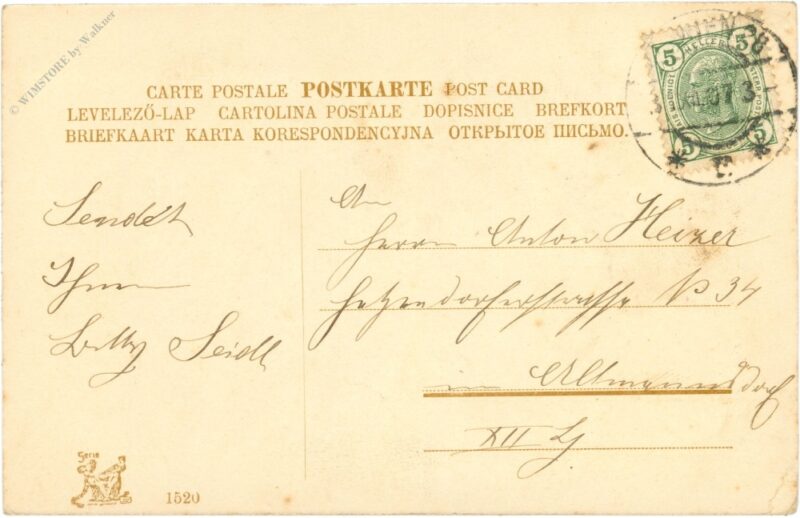 © WIMSTORE by Walkner
CARTE POSTALE POSTKARTE POST CARD
LEVELEZŐ-LAP CARTOLINA POSTALE DOPISNICE BREFKORT
BRIEFKAART KARTA KORESPONDENCYJNA ОТКРЫТОЕ ПИСЬМО.
5 HELLER 5
5 5
WIEN
07 3
An
Herrn Anton Heizer
Hetzendorferstrasse No 34
in Altmannsdorf
XII
Sendet
Ihnen
Betty Seidl
Serie
1520